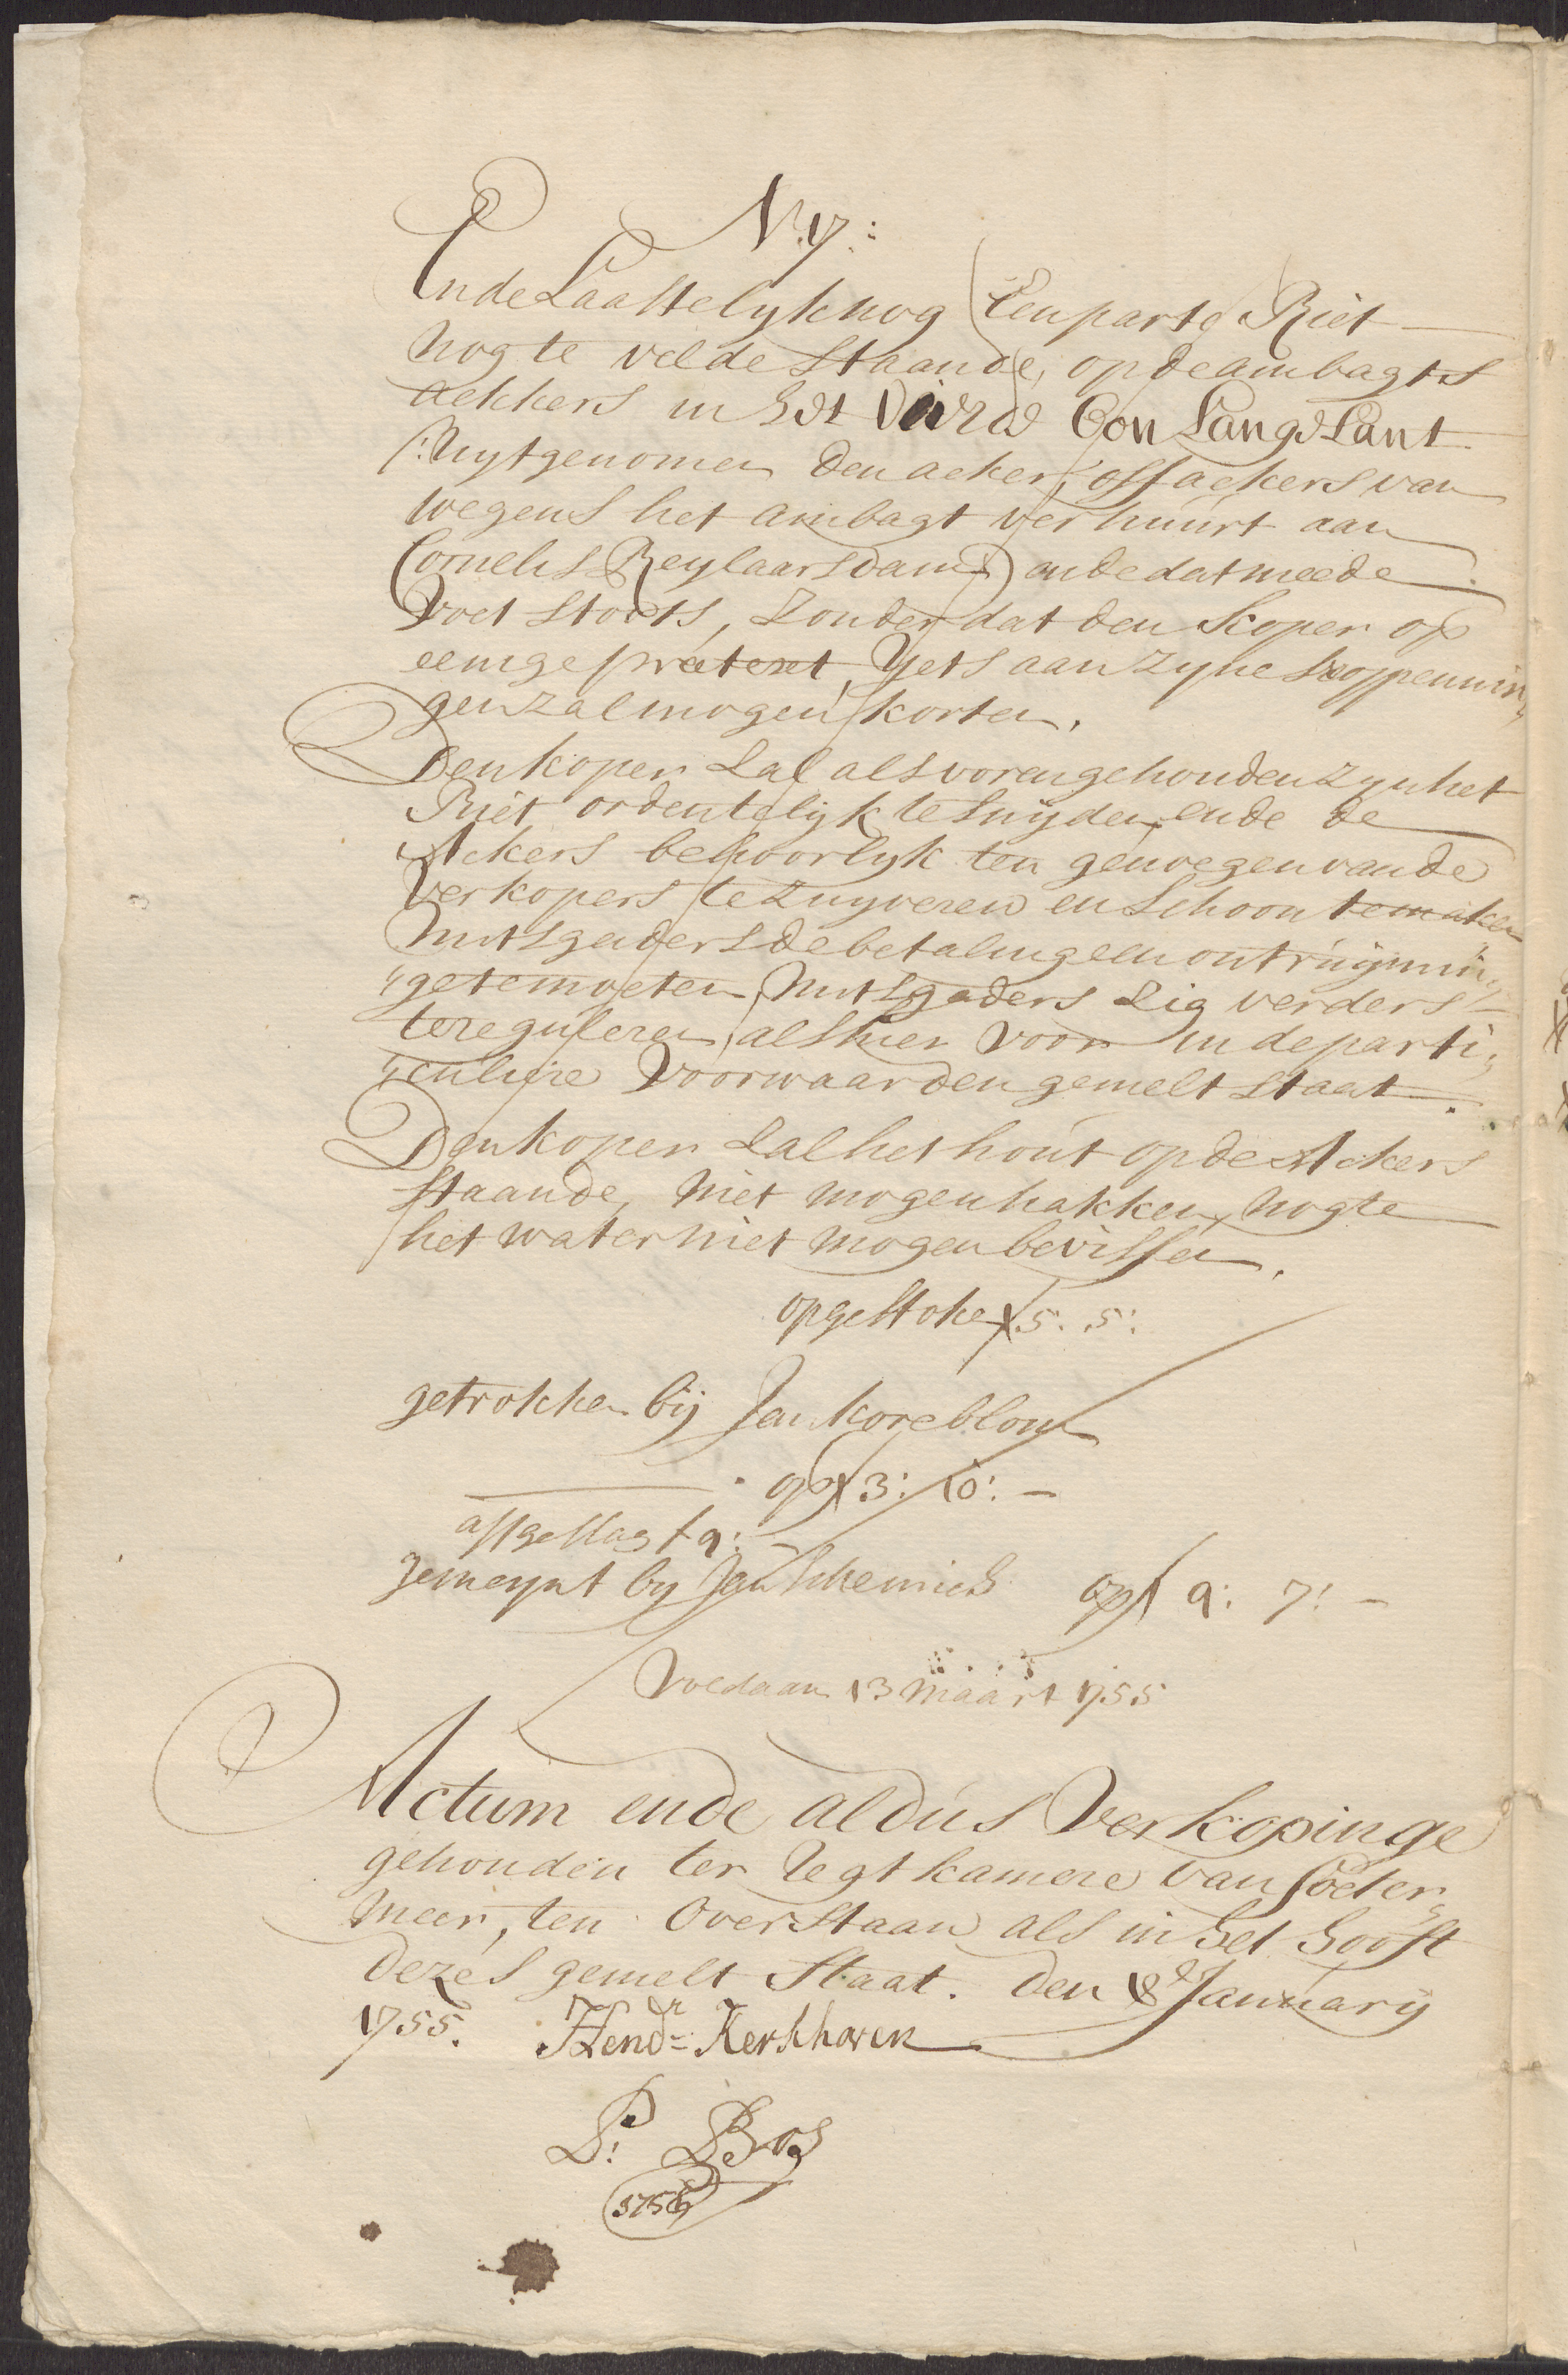 N:17:
Ende Laastelyk nog Een party Riet
nog te velde staande, op de ambagts
aekkers in het Derde Con Lange Lant
(:Uytgenomen den acker, off ackers van
wegens het ambagt verhuurt aan
Cornelis Reylaarsdam) ende dat meede
Voet stoots, Zonder dat den koper op
eenige pretext, Yets aan zyne kooppennin,
gen zal mogen korten.
Den koper sal als voren gehouden zyn het
Riet ordentelyk te snyden, ende de
Ackers behoorlyk ten genoegen van de
Verkopers te zuyveren en schoon te maken
mitsgaders de betaling en ontruymin,
"ge te moeten, mitsgaders sig verders
te reguleren, als hier voor in de parti,
"culiere Voorwaarden gemelt staat.
Den koper sal het hout op de Ackers
staande, niet mogen hakken, nogte
het water niet mogen bevissen.
opgestoke ƒ 5: 5:
getrokken bij Jan Koreblom
op ƒ 3: 10: -
affgeslag ƒ 9: -
gemeynt by Jan op ƒ 9: 7: -
Voldaan 13 maart 1755
Actum ende aldus Verkopinge
gehouden ter Regtkamere van Soeter,
meer, ten Overstaan als in het hooft
dezes gemelt staat. den 8e January
1755. Hendr= Kerkhoven
P: Bos
1755